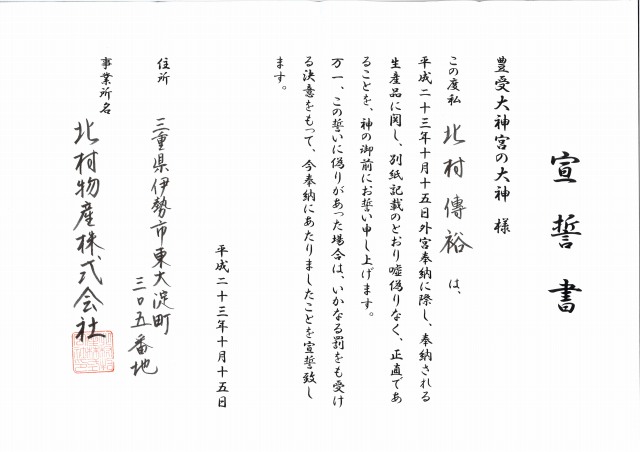 宣誓書
豊受大神宮の大神 様
この度私 北村傳裕 は、
平成二十三年十月十五日外宮奉納に際し、奉納される
生産品に関し、別紙記載のとおり嘘偽りなく、正直であ
ることを、神の御前にお誓い申し上げます。
万一、この誓いに偽りがあった場合は、いかなる罰をも受け
る決意をもって、今奉納にあたりましたことを宣誓致し
ます。
平成二十三年十月十五日
住所 三重県伊勢市東大淀町
三〇五番地
事業所名 北村物産株式会社